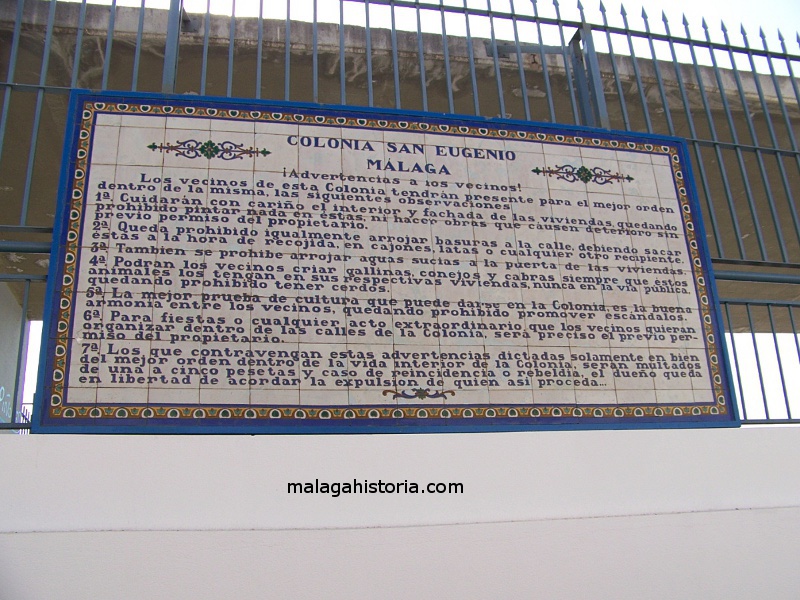 COLONIA SAN EUGENIO
MALAGA
¡Advertencias a los vecinos!
Los vecinos de esta Colonia tendrán presente para el mejor orden
dentro de la misma, las siguientes observaciones
1ª Cuidarán con cariño el interior y fachada de las viviendas, quedando
prohibido pintar nada en éstas, ni hacer obras que causen deterioro sin
previo permiso del propietario.
2ª Queda prohibido igualmente arrojar basuras a la calle, debiendo sacar
éstas a la hora de recojida, en cajones, latas o cualquier otro recipiente.
3ª Tambien se prohibe arrojar aguas sucias a la puerta de las viviendas.
4ª Podrán los vecinos criar gallinas, conejos y cabras siempre que éstos
animales los tengan en sus respectivas viviendas, nunca en la vía pública.
quedando prohibido tener cerdos.
5ª La mejor prueba de cultura que puede darse en la Colonia, es la buena
armonía entre los vecinos, quedando prohibido promover escándalos.
6ª Para fiestas o cualquier acto extraordinario que los vecinos quieran
organizar dentro de las calles de la Colonia, será preciso el previo per-
miso del propietario.
7ª Los que contravengan estas advertencias dictadas solamente en bien
del mejor orden dentro de la vida interior de la Colonia, serán multados
de una a cinco pesetas y caso de reincidencia o rebeldía, el dueño queda
en libertad de acordar la expulsión de quien así proceda...
malagahistoria.com